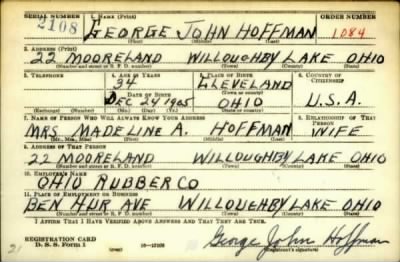 SERIAL NUMBER 1. NAME (Print) ORDER NUMBER
2108 GEORGE JOHN HOFFMAN 1084
(First) (Middle) (Last)
2. ADDRESS (Print)
22 MOORELAND WILLOUGHBY LAKE OHIO
(Number and street or R. F. D. number) (Town) (County) (State)
3. TELEPHONE 4. AGE IN YEARS 5. PLACE OF BIRTH 6. COUNTRY OF CITIZENSHIP
34 CLEVELAND
DATE OF BIRTH (Town or county)
DEC 24 1905 OHIO U.S.A.
(Exchange) (Number) (Mo.) (Day) (Yr.) (State or country)
7. NAME OF PERSON WHO WILL ALWAYS KNOW YOUR ADDRESS 8. RELATIONSHIP OF THAT PERSON
MRS MADELINE A. HOFFMAN WIFE
(Mr., Mrs., Miss) (First) (Middle) (Last)
9. ADDRESS OF THAT PERSON
22 MOORELAND WILLOUGHBY LAKE OHIO
(Number and street or R. F. D. number) (Town) (County) (State)
10. EMPLOYER'S NAME
OHIO RUBBER CO
11. PLACE OF EMPLOYMENT OR BUSINESS
BEN HUR AVE WILLOUGHBY LAKE OHIO
(Number and street or R. F. D. number) (Town) (County) (State)
I AFFIRM THAT I HAVE VERIFIED ABOVE ANSWERS AND THAT THEY ARE TRUE.
REGISTRATION CARD
D. S. S. Form 1 (over) George John Hoffman
(Registrant's signature)